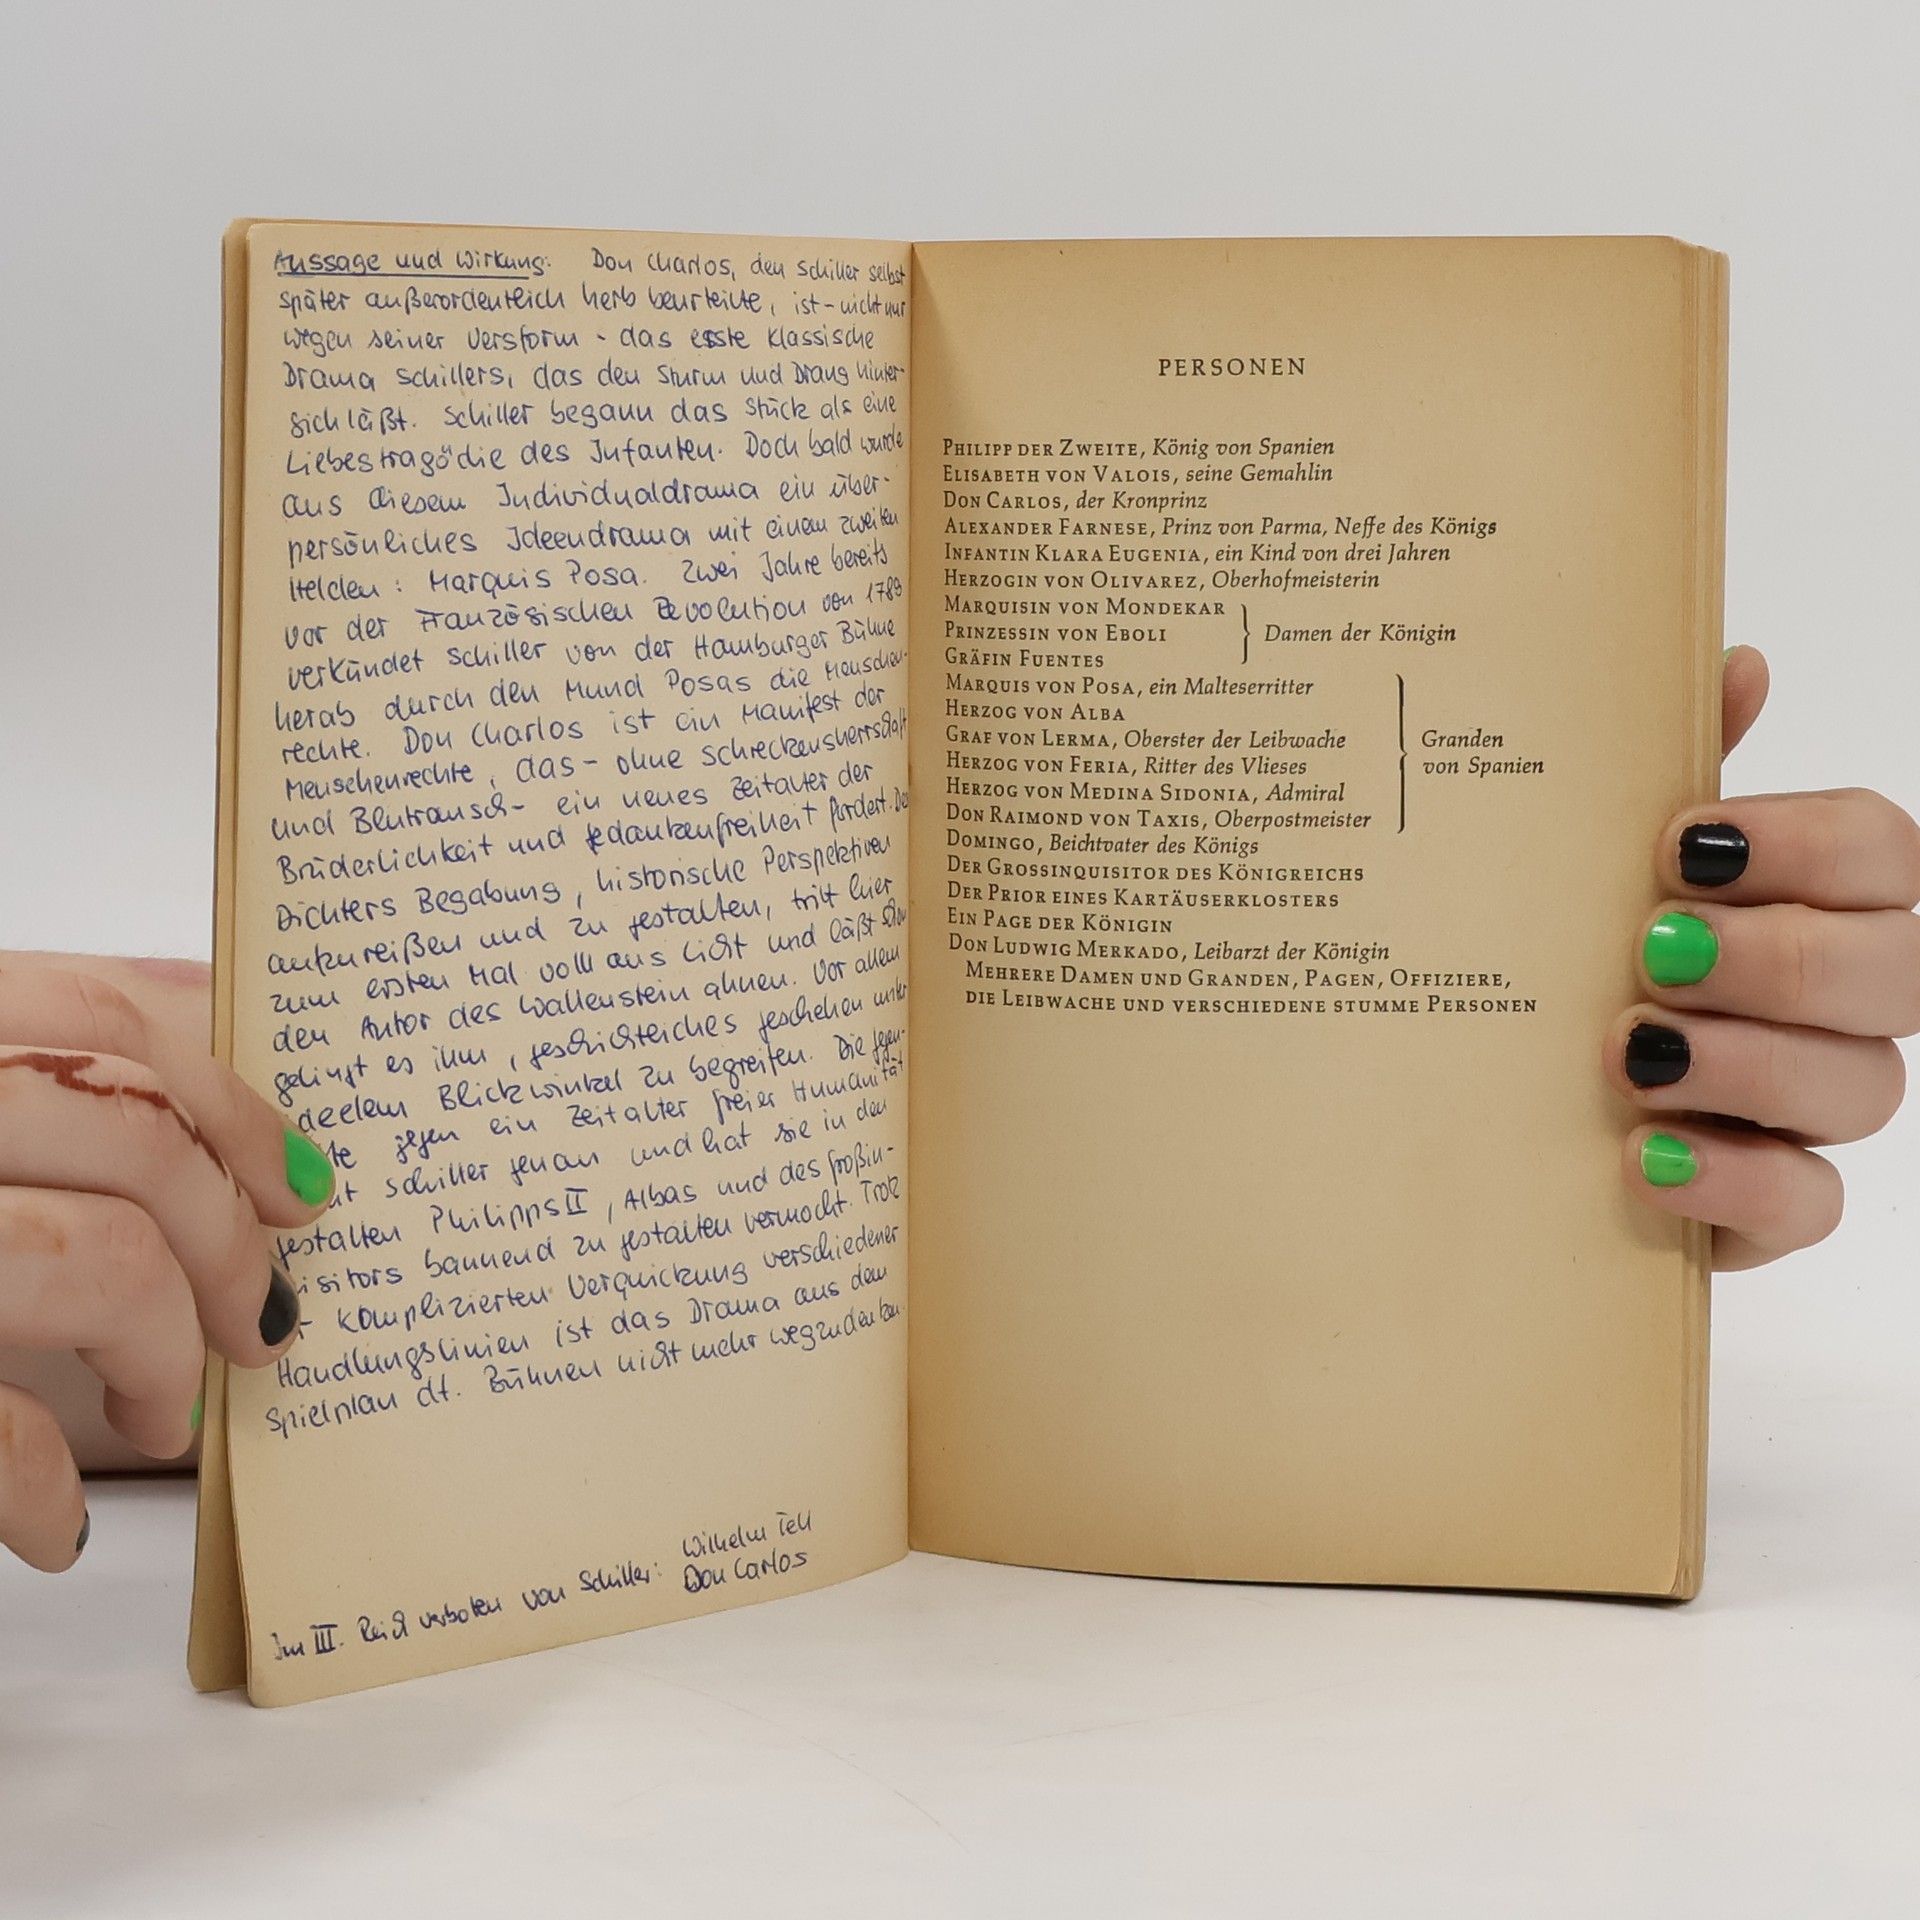 Aussage und Wirkung: Don Charlos, den Schiller selbst
später außerordentlich herb beurteilte, ist - nicht nur
wegen seiner Versform - das erste Klassische
Drama Schillers, das den Sturm und Drang hinter-
sich läßt. Schiller begann das Stück als eine
Liebestragödie des Infanten. Doch bald wurde
aus diesem Individualdrama ein über-
persönliches Ideendrama mit einem zweiten
Helden: Marquis Posa. Zwei Jahre bereits
vor der Französischen Revolution von 1789
verkündet Schiller von der Hamburger Bühne
herab durch den Mund Posas die Menschen-
rechte. Don Charlos ist ein Manifest der
Menschenrechte, das - ohne Schreckensherrschaft
und Blutrausch - ein neues Zeitalter der
Brüderlichkeit und Gedankenfreiheit fordert. Des
Dichters Begabung, historische Perspektiven
aufzureißen und zu gestalten, tritt hier
zum ersten Mal voll ans Licht und läßt schon
den Autor des Wallenstein ahnen. Vor allem
gelingt es ihm, geschichtliches Geschehen unter
ideelem Blickwinkel zu begreifen. Die Gegen-
te gegen ein Zeitalter freier Humanität
nt Schiller genau und hat sie in den
Gestalten Philipps II, Albas und des Großin-
isitors bannend zu gestalten vermocht. Trotz
r Komplizierten Verquickung verschiedener
Handlungslinien ist das Drama aus dem
Spielplan dt. Bühnen nicht mehr wegzudenken.
Im III. Reich verboten von Schiller: Wilhelm Tell
Don Carlos
PERSONEN
PHILIPP DER ZWEITE, König von Spanien
ELISABETH VON VALOIS, seine Gemahlin
DON CARLOS, der Kronprinz
ALEXANDER FARNESE, Prinz von Parma, Neffe des Königs
INFANTIN KLARA EUGENIA, ein Kind von drei Jahren
HERZOGIN VON OLIVAREZ, Oberhofmeisterin
MARQUISIN VON MONDEKAR
PRINZESSIN VON EBOLI
GRÄFIN FUENTES
Damen der Königin
MARQUIS VON POSA, ein Malteserritter
HERZOG VON ALBA
GRAF VON LERMA, Oberster der Leibwache
HERZOG VON FERIA, Ritter des Vlieses
HERZOG VON MEDINA SIDONIA, Admiral
DON RAIMOND VON TAXIS, Oberpostmeister
Granden
von Spanien
DOMINGO, Beichtvater des Königs
DER GROSSINQUISITOR DES KÖNIGREICHS
DER PRIOR EINES KARTÄUSERKLOSTERS
EIN PAGE DER KÖNIGIN
DON LUDWIG MERKADO, Leibarzt der Königin
MEHRERE DAMEN UND GRANDEN, PAGEN, OFFIZIERE,
DIE LEIBWACHE UND VERSCHIEDENE STUMME PERSONEN